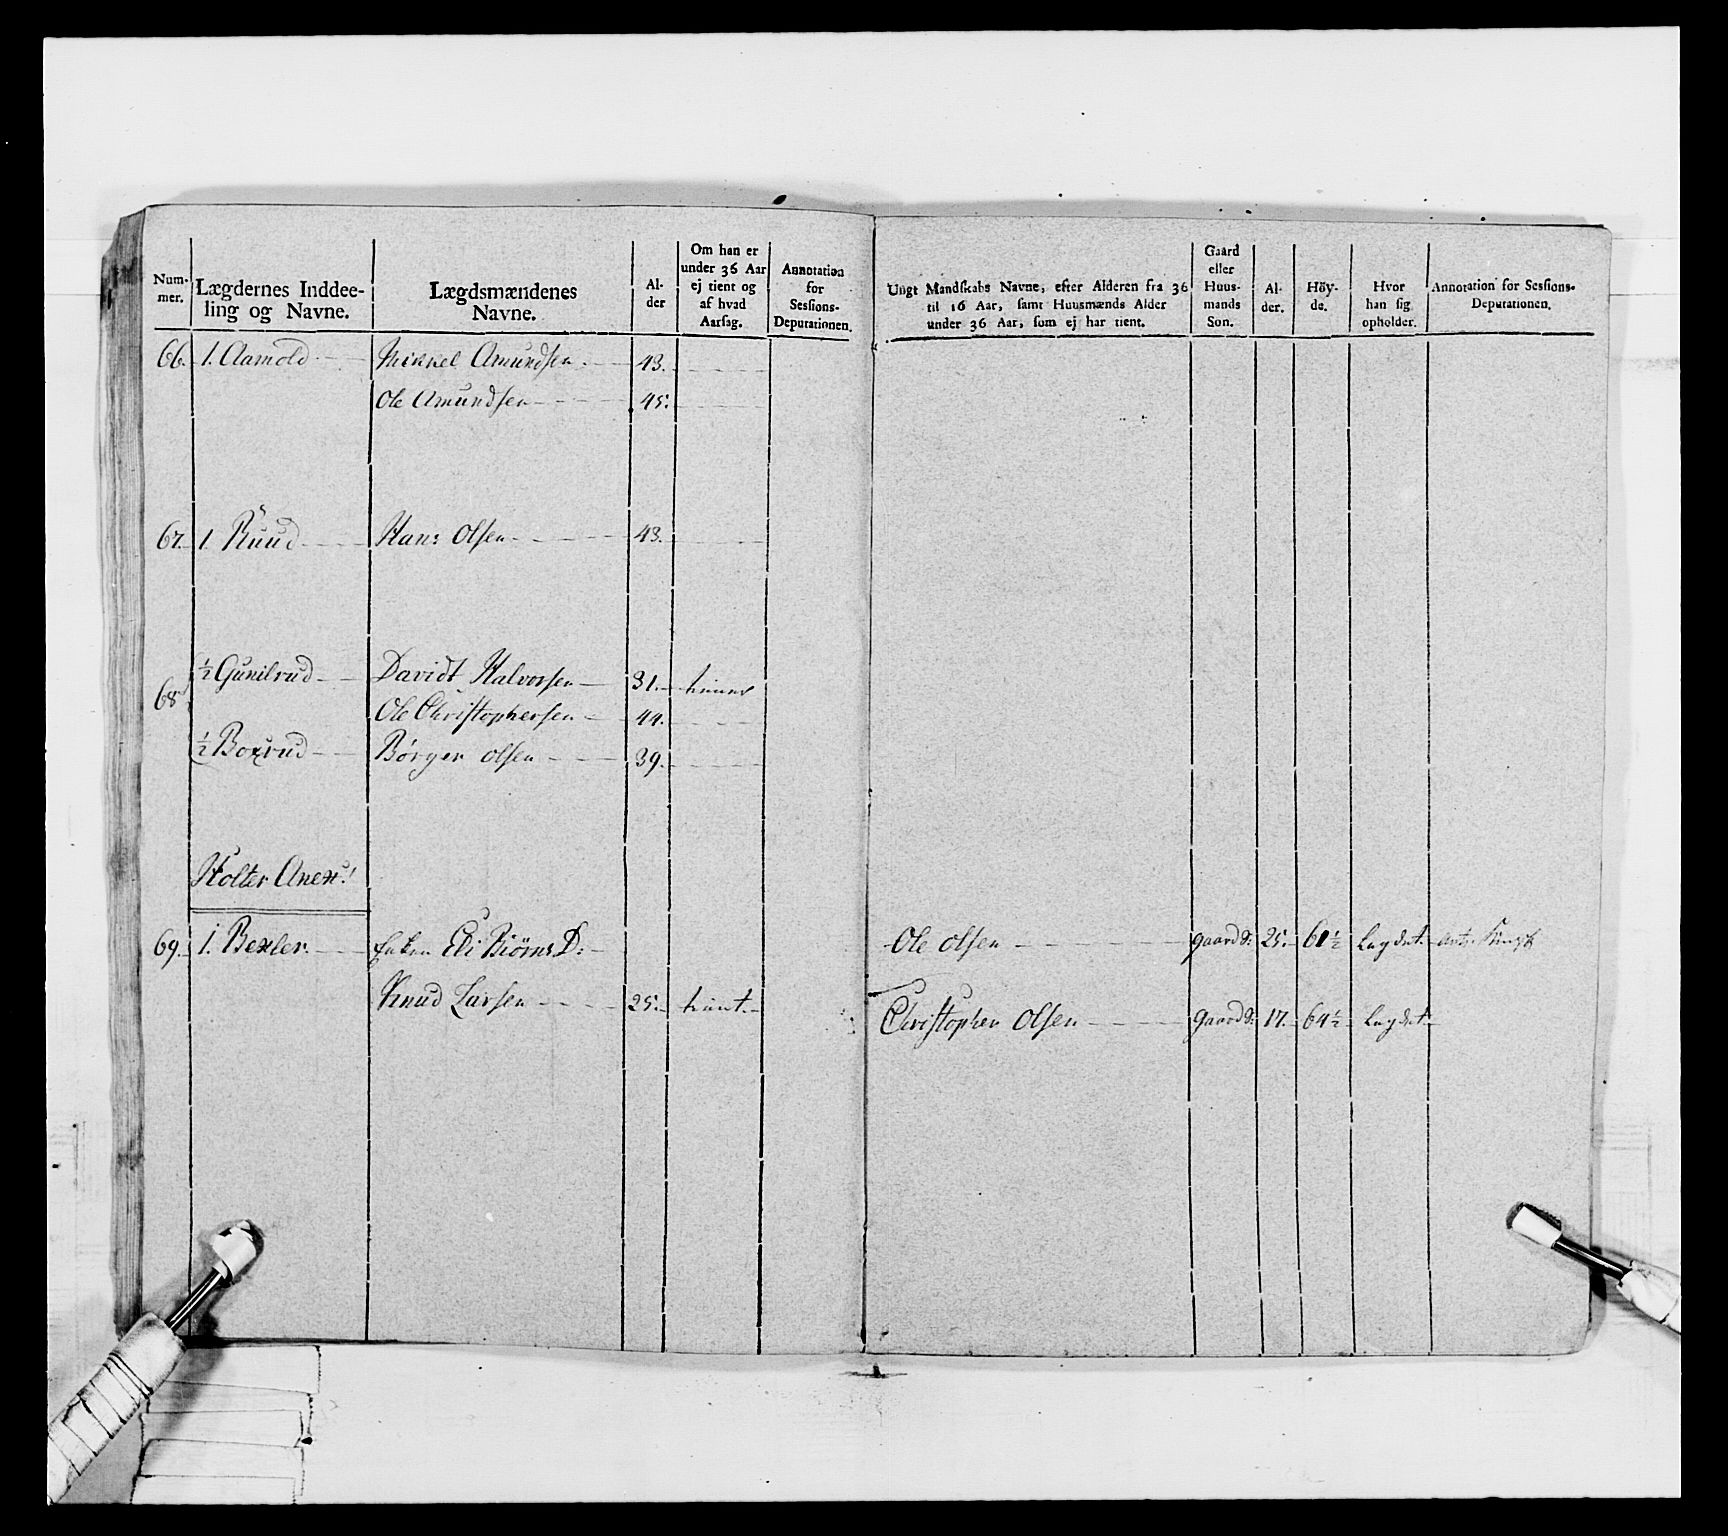 Num-
mer.
Lægdernes Inddee-
ling og Navne.
Lægdsmændenes
Navne.
Al-
der
Om han er
under 36 Aar
ej tient og
af hvad
Aarsag.
Annotation
for
Sessions-
Deputationen.
Ungt Mandskabs Navne, efter Alderen fra 36
til 16 Aar, samt Huusmænds Alder
under 36 Aar, som ej har tient.
Gaard
eller
Huus-
mands
Søn.
Al-
der.
Höy-
de.
Hvor
han sig
opholder.
Annotation for Sessions-
Deputationen.
66. 1. Aamold Mikkel Amundsen 43.
Ole Amundsen 45.
67. 1. Ruud Hans Olsen 43.
68 ½ Gunilrud Davidt Halvorsen 31.
Ole Christophersen 44.
½ Boxrud Börger Olsen 39.
Holter Anex:
69. 1. Bexler Enken Eli Biörns D: Ole Olsen gaard S: 25. 61½ Lægdet
Knud Larsen 25. tient.
Christopher Olsen gaard S: 17. 64½ Lægdet